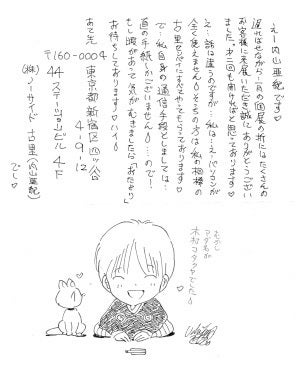 えー内山亜紀です♡
遅ればせながら一月の個展の折にはたくさんの
お客様に来展いただき誠にありがとうござい
ました。オニ回も開ければと思っております♡
え…話は違うのですが…私は…え…パソコンが
全く使えません💧そちらの方は私の相棒の
古里さんにまかせてやってもらっております♡
で…私自身の通信手段としましては…
直の手紙しかございません💧…ので…
もし暇があって気がむきましたら「おたより」
お待ちしております♡ハイ💧
あて先
〒160-0004
東京都新宿区四ッ谷
4-9-12
44ステーションビル4F
(株)ノーサイド 古里(内山亜紀)
でし♡
むかし
アダ名が
木村コタクヤでした💧